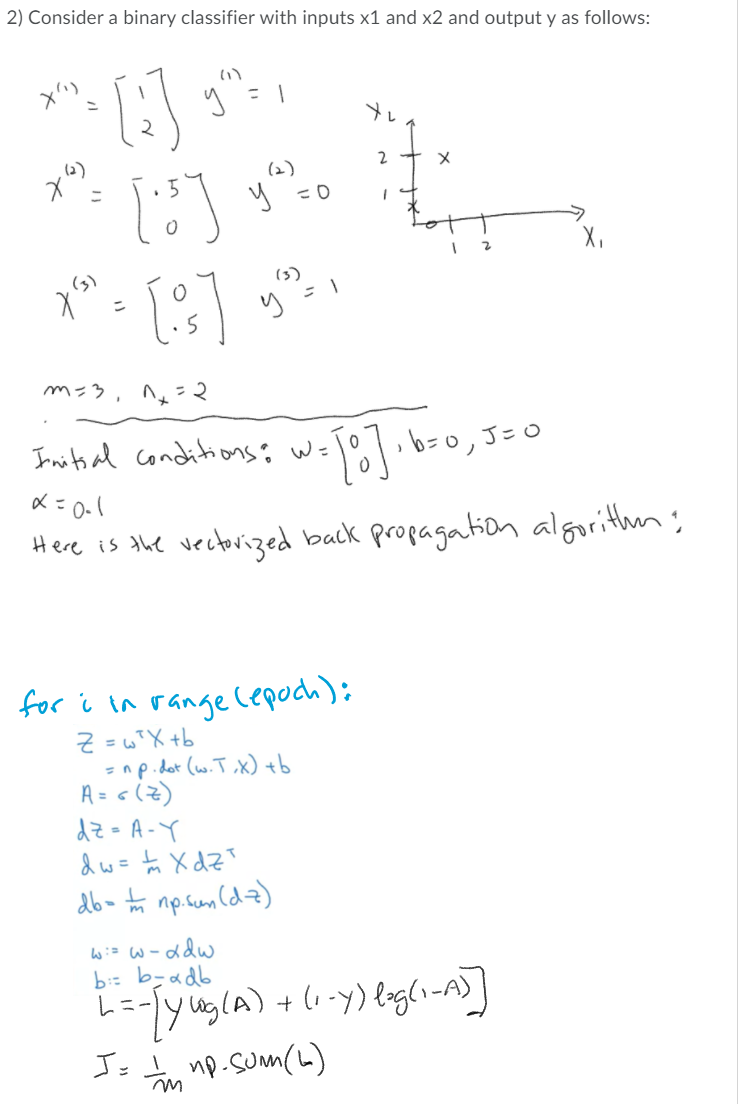 2) Consider a binary classifier with inputs x1 and x2 and output y as follows:
x⁽¹⁾ = [1 2] y⁽¹⁾ = 1
x⁽²⁾ = [.5 0] y⁽²⁾ = 0
x⁽³⁾ = [0 .5] y⁽³⁾ = 1
X₂
2 x
1
x
1 2 X₁
m=3, nₓ=2
Initial conditions: w=[0 0], b=0, J=0
α=0.1
Here is the vectorized back propagation algorithm:
for i in range(epoch):
Z = wᵀX+b
= np.dot(w.T,X)+b
A = σ(Z)
dZ = A-Y
dw = 1/m X dZᵀ
db = 1/m np.sum(dZ)
w:= w-αdw
b:= b-αdb
L=-[y log(A) + (1-y) log(1-A)]
J= 1/m np.sum(L)